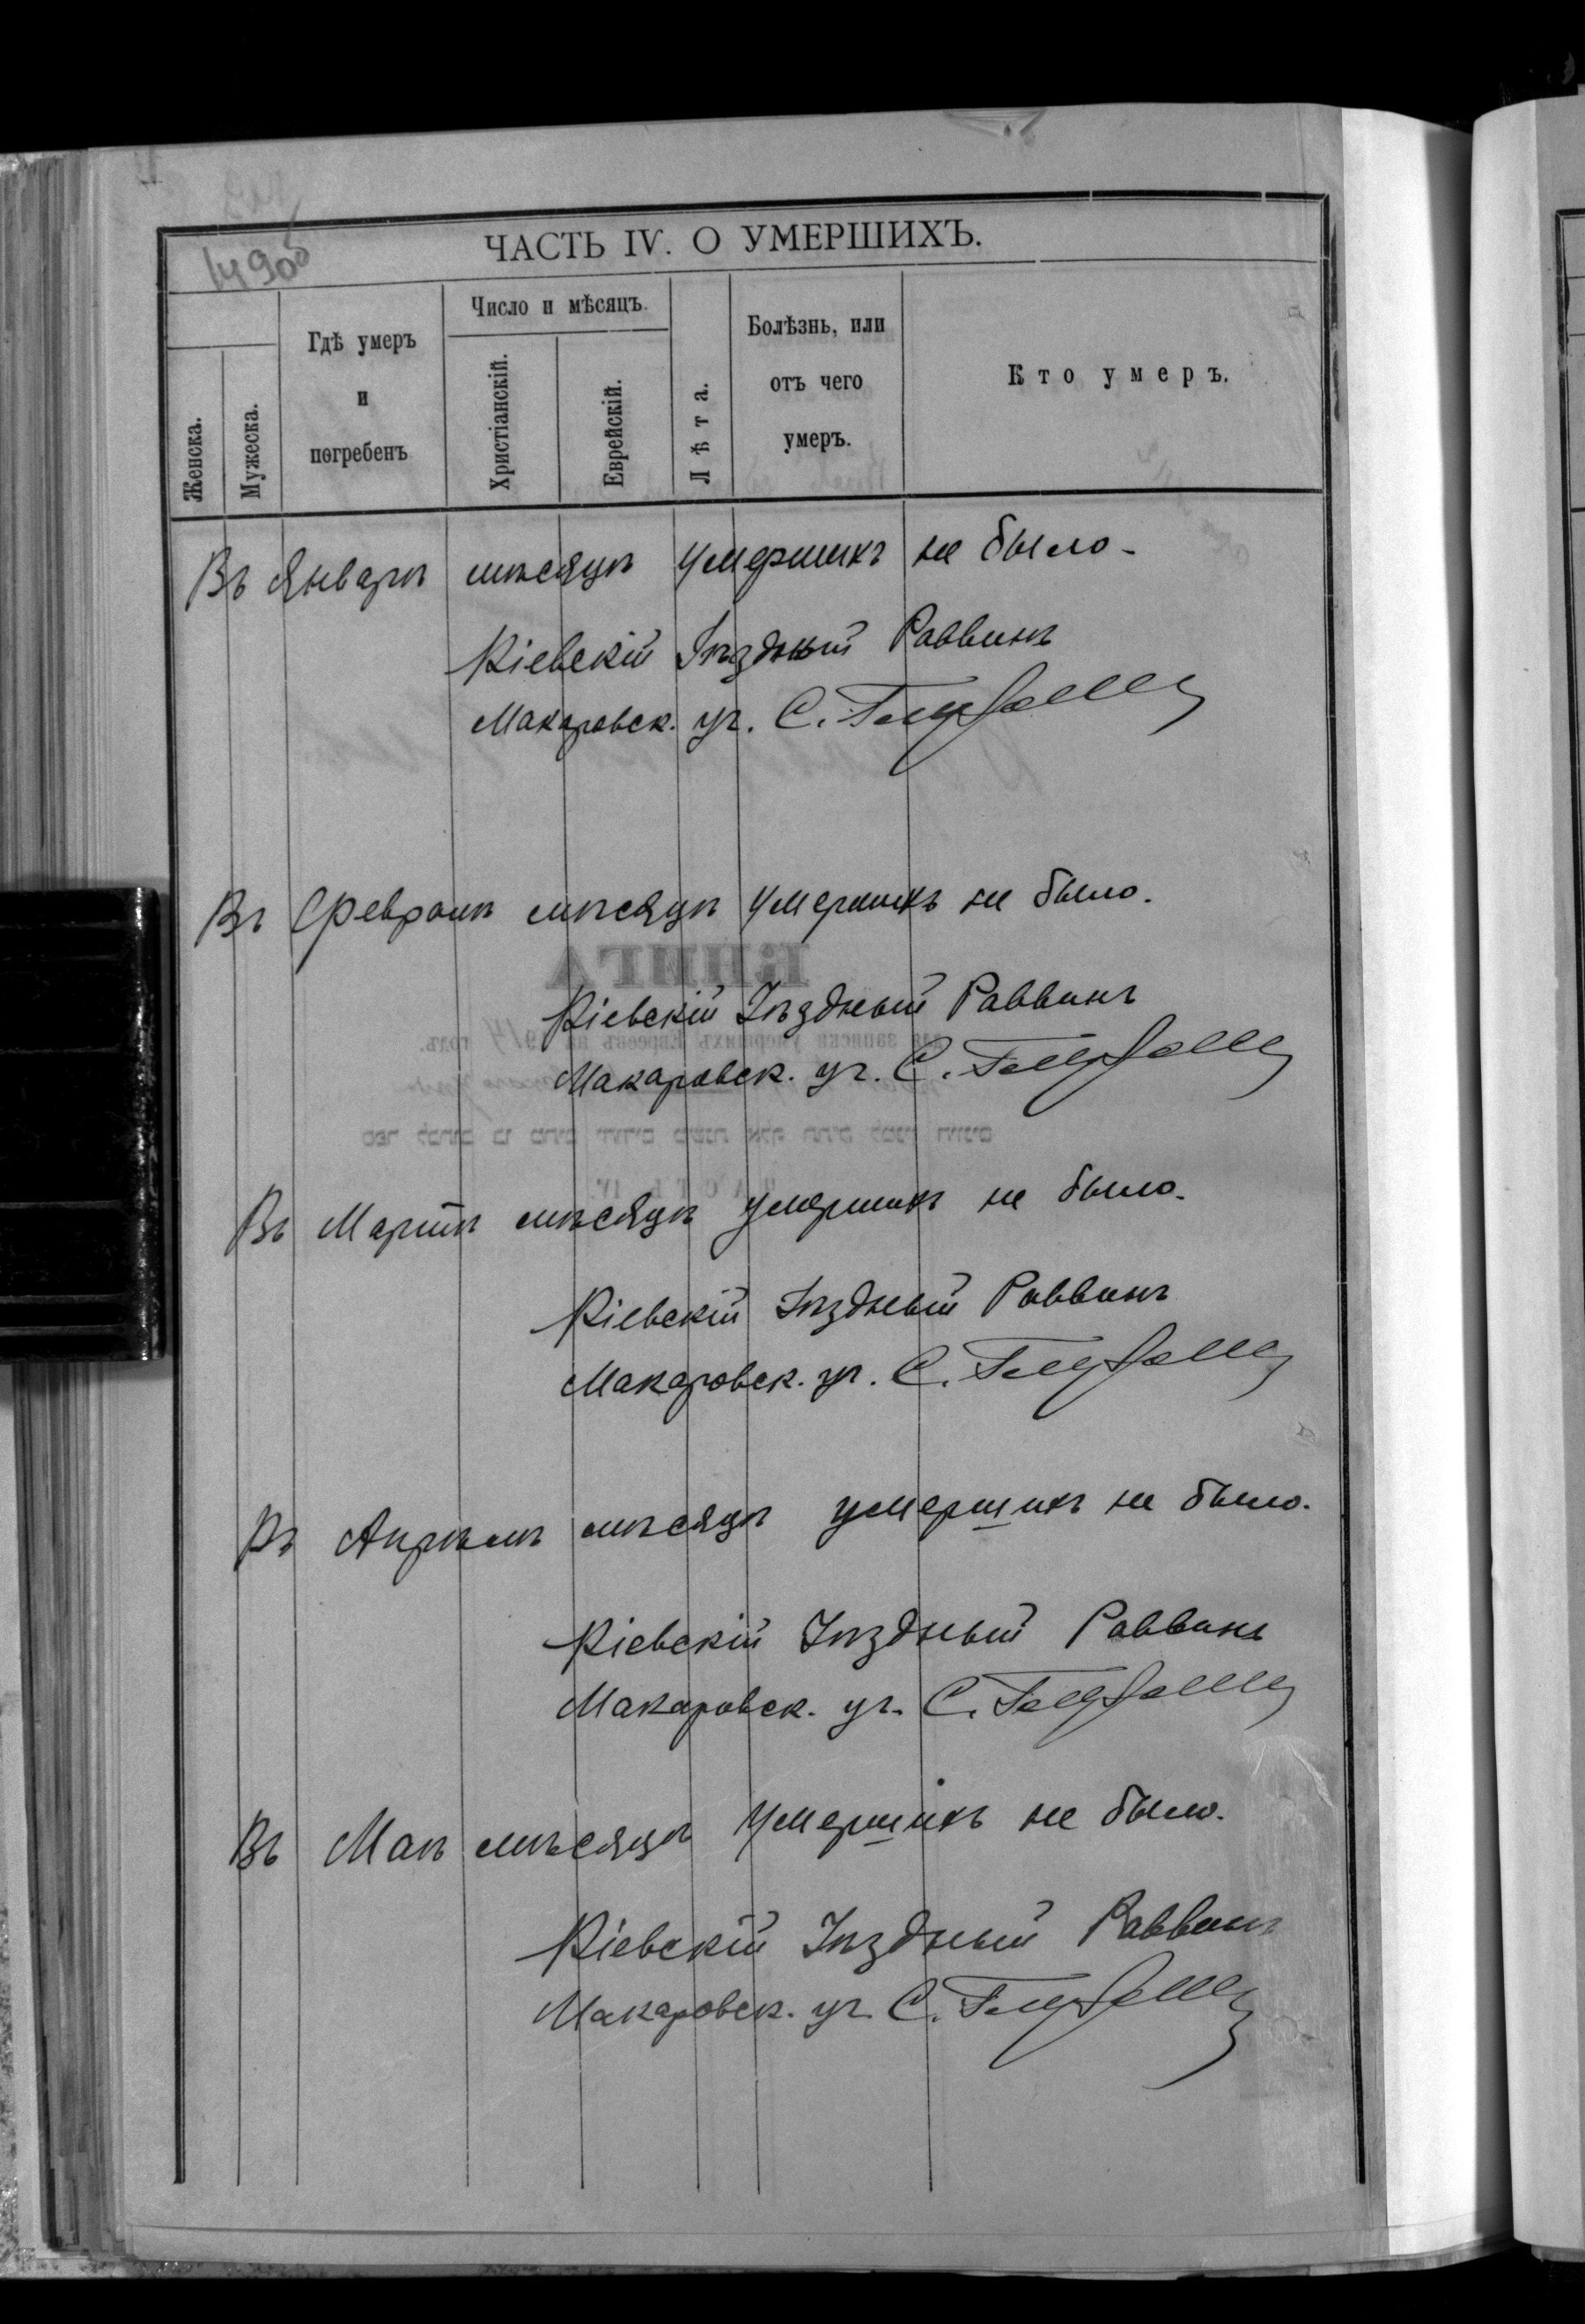 1490об
ЧАСТЬ IV. О УМЕРШИХЪ.
Женска.
Мужеска.
Гдѣ умеръ
и
погребенъ
Число и мѣсяцъ.
Христіанскій.
Еврейскій.
Лѣта.
Болѣзнь, или
отъ чего
умеръ.
Кто умеръ.
Въ Январѣ мѣсяцѣ умершихъ не было.
Кіевскій Уѣздный Раввинъ
Макаровск. уч. С.
Въ Февралѣ мѣсяцѣ умершихъ не было.
КНИГА
Кіевскій Уѣздный Раввинъ
для записки умершихъ евреевъ на 1914 годъ.
Макаровск. уч. С.
ЧАСТЬ IV.
Въ Мартѣ мѣсяцѣ умершихъ не было.
Кіевскій Уѣздный Раввинъ
Макаровск. уч. С.
Въ Апрѣлѣ мѣсяцѣ умершихъ не было.
Кіевскій Уѣздный Раввинъ
Макаровск. уч. С.
Въ Маѣ мѣсяцѣ умершихъ не было.
Кіевскій Уѣздный Раввинъ
Макаровск. уч. С.